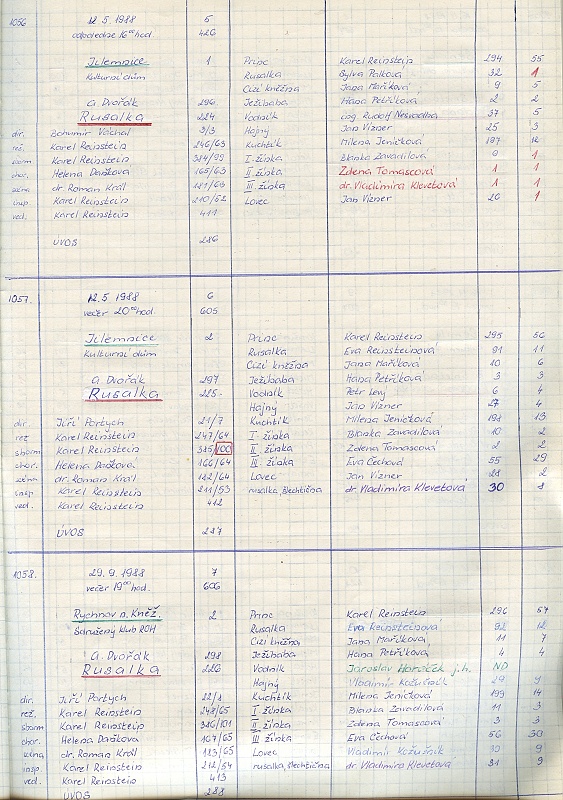 1056 12.5 1988 5
odpoledne 16°° hod. 426
Jilemnice 1 Princ Karel Reinstein 294 55
Kulturní dům Rusalka Sylva Palková 32 1
Cizí kněžna Jana Maříková 9 5
A Dvořák 296 Ježibaba Hana Petříčková 2 2
Rusalka 224 Vodník ing. Rudolf Nesvadba 37 5
dir. Bohumír Váchal 3/3 Hajný Jan Vízner 25 3
rež. Karel Reinstein 246/63 Kuchtík Milena Jeníčková 197 12
sborm Karel Reinstein 314/99 I. žínka Blanka Zavadilová 9 1
chor. Helena Dašková 165/63 II žínka Zdena Tomascová 1 1
scéna dr. Roman Král 121/63 III. žínka dr. Vladimíra Klevetová 1 1
insp Karel Reinstein 210/52 Lovec Jan Vízner 26 1
ved. Karel Reinstein 411
ÚVOS 286
1057. 12.5 1988 6
večer 20°° hod. 605
Jilemnice 2 Princ Karel Reinstein 295 56
Kulturní dům Rusalka Eva Reinsteinová 91 11
Cizí kněžna Jana Maříková 10 6
A Dvořák 297 Ježibaba Hana Petříčková 3 3
Rusalka 225 Vodník Petr Levý 6 4
Hajný Jan Vízner 27 4
dir. Jiří Portych 21/7 Kuchtík Milena Jeníčková 198 13
rež Karel Reinstein 247/64 I žínka Blanka Zavadilová 10 2
sborm Karel Reinstein 315/100 II žínka Zdena Tomascová 2 2
chor. Helena Dašková 166/64 III. žínka Eva Čechová 55 29
scéna dr. Roman Král 122/64 Lovec Jan Vízner 28 2
insp Karel Reinstein 211/53 rusalka, šlechtična dr. Vladimíra Klevetová 30 8
ved. Karel Reinstein 412
ÚVOS 287
1058. 29.9.1988 7
večer 19°° hod. 606
Rychnov n. Kněž. 2 Princ Karel Reinstein 296 57
Sdružený klub ROH Rusalka Eva Reinsteinová 92 12
Cizí kněžna Jana Maříková 11 7
A. Dvořák 298 Ježibaba Hana Petříčková 4 4
Rusalka 226 Vodník Jaroslav Horáček j.h. ND
Hajný Vladimír Kožušník 29 9
dir. Jiří Portych 22/8 Kuchtík Milena Jeníčková 199 14
rež. Karel Reinstein 248/65 I žínka Blanka Zavadilová 11 3
sborm Karel Reinstein 316/101 II žínka Zdena Tomascová 3 3
chor. Helena Dašková 167/65 III žínka Eva Čechová 56 30
scéna dr. Roman Král 123/65 Lovec Vladimír Kožušník 30 9
insp. Karel Reinstein 212/54 rusalka, šlechtična dr. Vladimíra Klevetová 31 9
ved. Karel Reinstein 413
ÚVOS 288